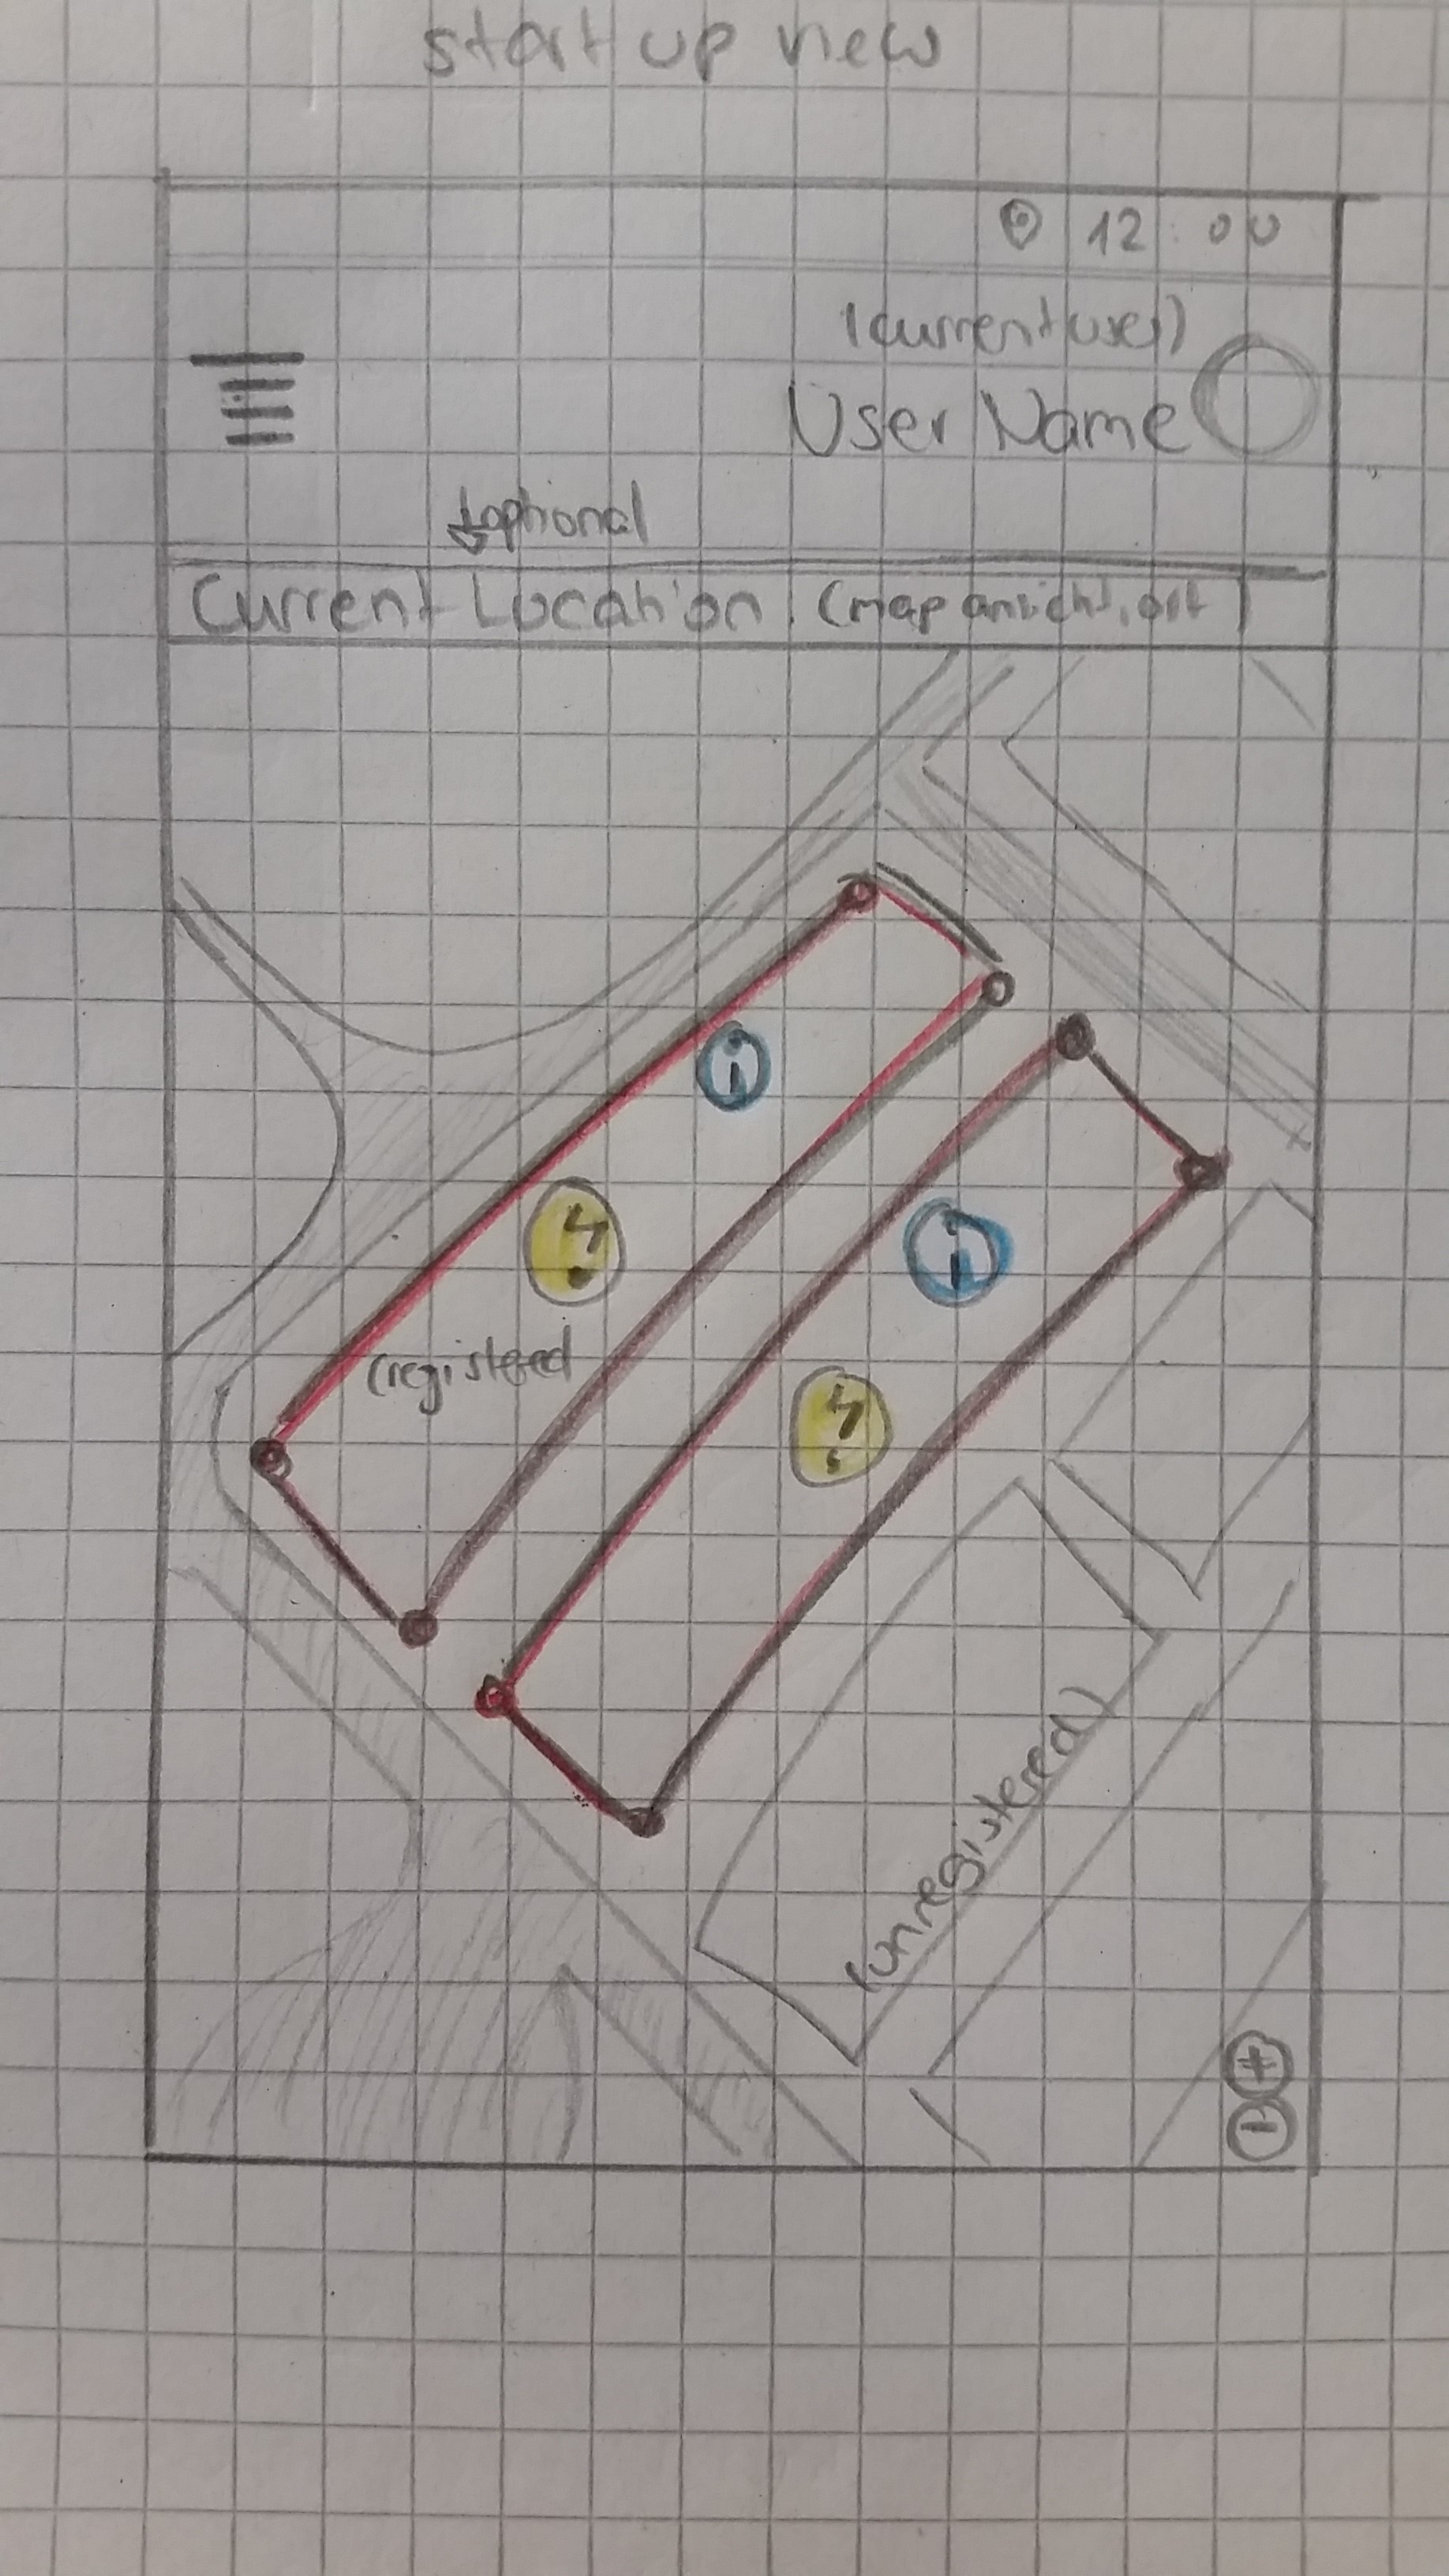 start up view
12:00
(current user)
User Name
optional
Current Location (map ansicht, ort)
i
i
(registered
(unregistered)
+
-